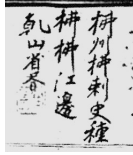 柳州柳刺史種
柳柳江邊
乾山省春